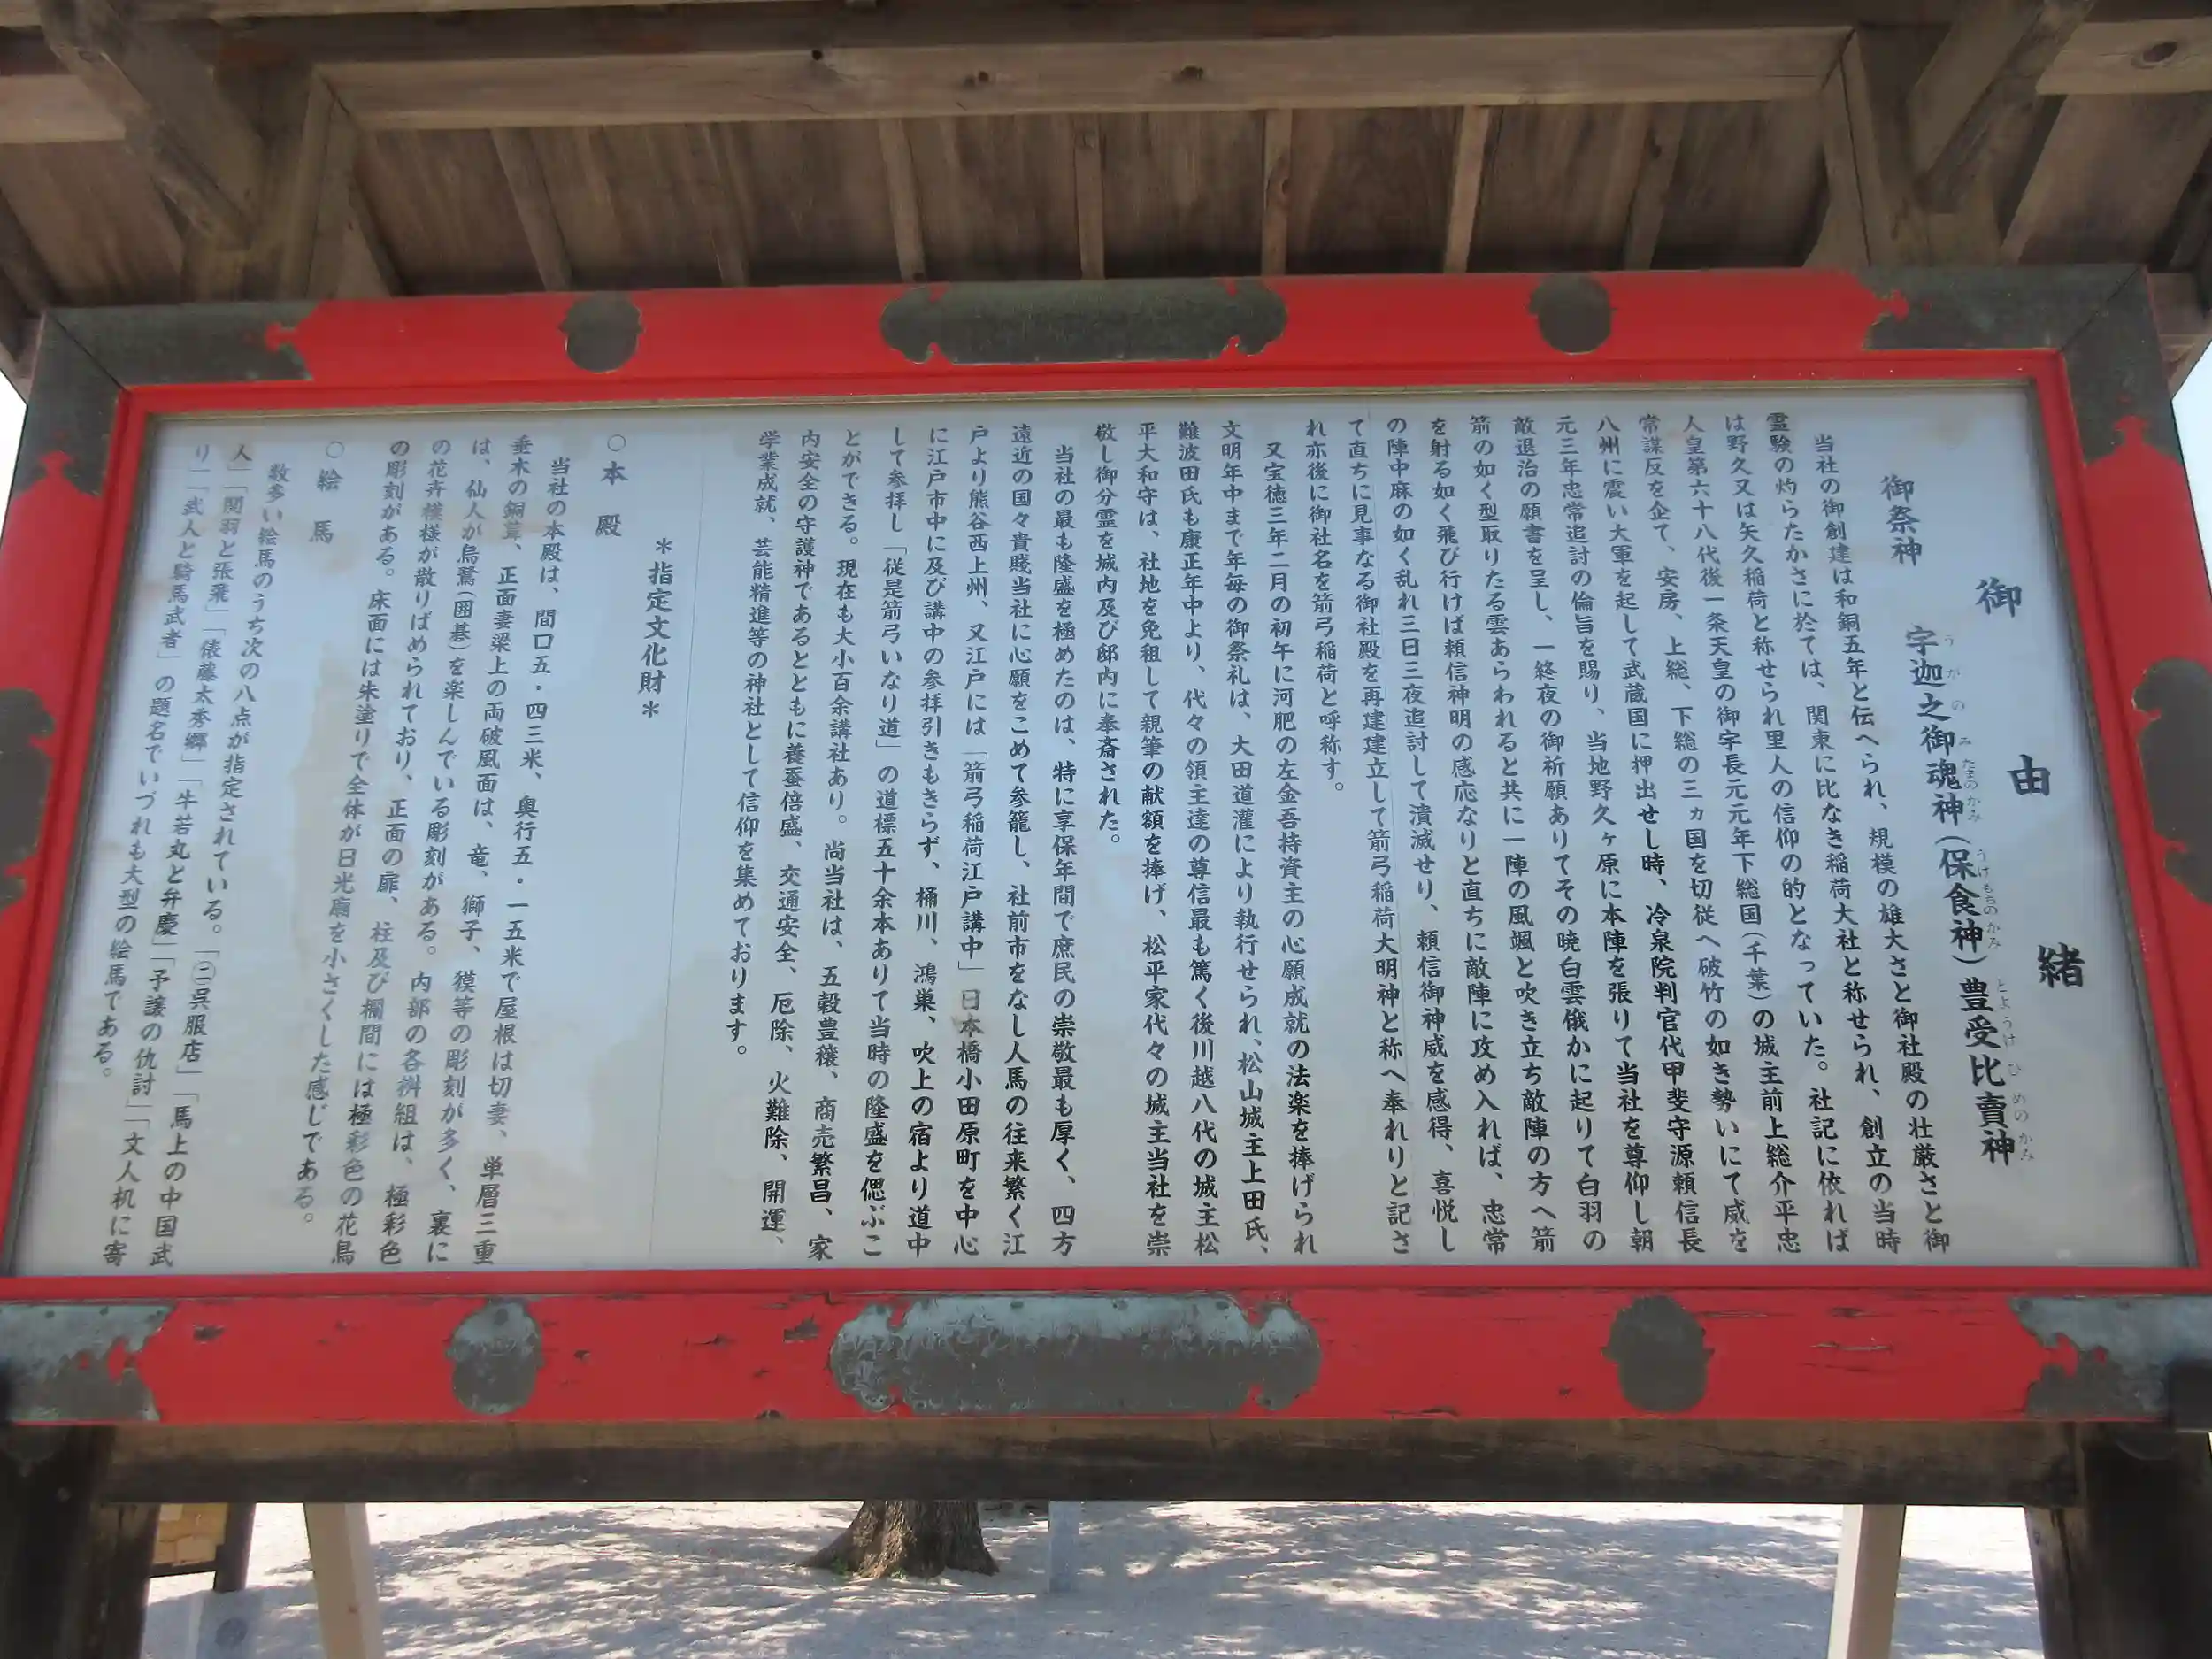 御由緒
御祭神
宇迦之御魂神(保食神)豊受比賣神
うがのみたまのかみ うけもちのかみ とようけひめのかみ
当社の御創建は和銅五年と伝へられ、規模の雄大さと御社殿の壮厳さと御
霊験の灼らたかさに於ては、関東に比なき稲荷大社と称せられ、創立の当時
は野久又は矢久稲荷と称せられ里人の信仰の的となっていた。社記に依れば
人皇第六十八代後一条天皇の御宇長元元年下総国(千葉)の城主前上総介平忠
常謀反を企て、安房、上総、下総の三ヵ国を切従へ破竹の如き勢いにて威を
八州に震い大軍を起して武蔵国に押出せし時、冷泉院判官代甲斐守源頼信長
元三年忠常追討の倫旨を賜り、当地野久ヶ原に本陣を張りて当社を尊仰し朝
敵退治の願書を呈し、一終夜の御祈願ありてその暁白雲俄かに起りて白羽の
箭の如く型取りたる雲あらわれると共に一陣の風颯と吹き立ち敵陣の方へ箭
を射る如く飛び行けば頼信神明の感応なりと直ちに敵陣に攻め入れば、忠常
の陣中麻の如く乱れ三日三夜追討して潰滅せり、頼信御神威を感得、喜悦し
て直ちに見事なる御社殿を再建建立して箭弓稲荷大明神と称へ奉れりと記さ
れ亦後に御社名を箭弓稲荷と呼称す。
又宝徳三年二月の初午に河肥の左金吾持資主の心願成就の法楽を捧げられ
文明年中まで年毎の御祭礼は、大田道灌により執行せられ、松山城主上田氏、
難波田氏も康正年中より、代々の領主達の尊信最も篤く後川越八代の城主松
平大和守は、社地を免租して親筆の献額を捧げ、松平家代々の城主当社を崇
敬し御分霊を城内及び邸内に奉斎された。
当社の最も隆盛を極めたのは、特に享保年間で庶民の崇敬最も厚く、四方
遠近の国々貴賤当社に心願をこめて参籠し、社前市をなし人馬の往来繁く江
戸より熊谷西上州、又江戸には「箭弓稲荷江戸講中」日本橋小田原町を中心
に江戸市中に及び講中の参拝引きもきらず、桶川、鴻巣、吹上の宿より道中
して参拝し「従是箭弓いなり道」の道標五十余本ありて当時の隆盛を偲ぶこ
とができる。現在も大小百余講社あり。尚当社は、五穀豊穣、商売繁昌、家
内安全の守護神であるとともに養蚕倍盛、交通安全、厄除、火難除、開運、
学業成就、芸能精進等の神社として信仰を集めております。
＊指定文化財＊
○本殿
当社の本殿は、間口五・四三米、奥行五・一五米で屋根は切妻、単層三重
垂木の銅葺、正面妻梁上の両破風面は、竜、獅子、獏等の彫刻が多く、裏に
は、仙人が烏鷺(囲碁)を楽しんでいる彫刻がある。内部の各桝組は、極彩色
の花卉模様が散りばめられており、正面の扉、柱及び欄間には極彩色の花鳥
の彫刻がある。床面には朱塗りで全体が日光廟を小さくした感じである。
○絵馬
数多い絵馬のうち次の八点が指定されている。「㊁呉服店」「馬上の中国武
人」「関羽と張飛」「俵藤太秀郷」「牛若丸と弁慶」「予譲の仇討」「文人机に寄
り」「武人と騎馬武者」の題名でいづれも大型の絵馬である。